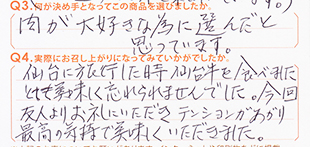 Q3.何が決め手となってこの商品を選びましたか。
肉が大好きな為に選んだと
思っています。
Q4.実際にお召し上がりになってみていかがでしたか。
仙台に旅行した時仙台牛を食べました
とても美味しく忘れられませんでした。今回
友人よりお礼にいただきテンションがあがり
最高の気持で美味しくいただきました。